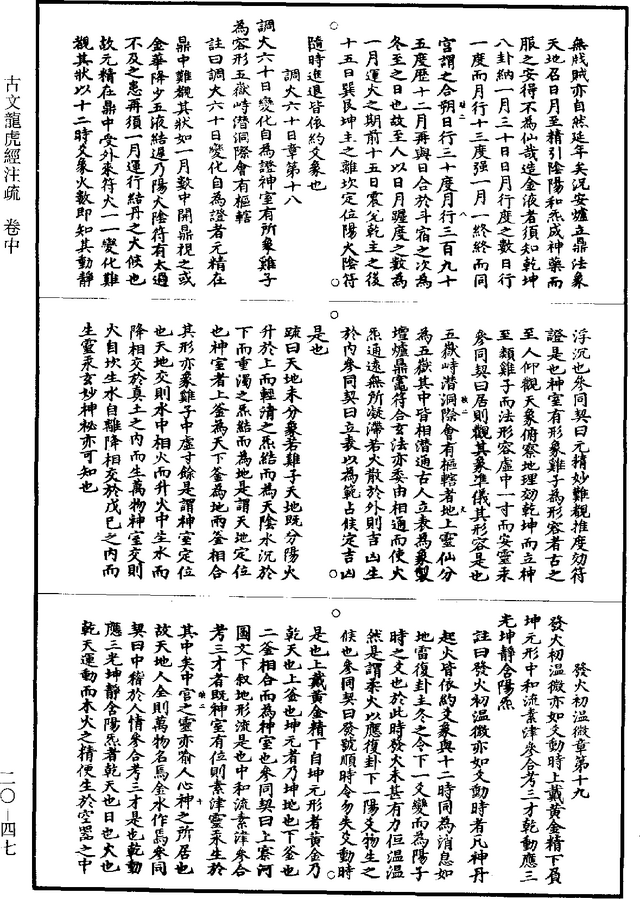 無戕賊亦自然延年矣況安爐立鼎法象
天地名日月至精引陰陽和炁成神藥而
服之安得不為仙哉造金液者須知乾坤
八卦納一月三十日日月行度之數日行
一度而月行十三度强一月一終終而同
宫謂之合朔日行三十度月行三百九十
五度歷十二月再與日合於斗宿之次為
冬至之日也故至人以日月躔度之數為
一月運火之期前十五日震兌乾主之後
十五日巽艮坤主之離坎定位陽火陰符
隨時進退皆依約爻象也
調火六十日章第十八
調火六十日變化自為證神室有所象雞子
為容形五嶽峙潛洞際會有樞轄
註曰調火六十日變化自為證者元精在
鼎中難觀其狀如一月數中開鼎視之或
金華降少五液結遲乃陽火陰符有太過
不及之患再須一月運行結丹之大候也
故元精在鼎中受外來符火一一變化難
觀其狀以十二時爻象火數即知其動靜
浮沉也參同契曰元精妙難觀推度効符
證是也神室有形象雞子為形容者古之
至人仰觀天象俯察地理効乾坤而立神
室類雞子而法形容虛中一寸而安靈汞
參同契曰居則觀其象準儀其形容是也
五嶽峙潛洞際會有樞轄者地上靈仙分
為五嶽其中皆相潛通古人立表為象製
壇爐鼎竈符合玄法亦委由相通而使火
炁通遠無所凝滯若火散於外則吉凶生
於內參同契曰立表以為範占候定吉凶
是也
疏曰天地未分象若雞子天地既分陽火
升於上而輕清之炁結而為天陰水沉於
下而重濁之炁結而為地是謂天地定位
也神室者上釜為天下釜為地兩釜相合
其形亦象雞子中虛寸餘是謂神室定位
也天地交則水中相火而升火中生水而
降相交於真土之內而生萬物神室交則
火自坎生水自離降相交於戊巳之內而
生靈汞玄妙神祕亦可知也
發火初溫微章第十九
發火初溫微亦如爻動時上戴黃金精下負
坤元形中和流素津參合考三才乾動應三
光坤靜含陽炁
註曰發火初溫微亦如爻動時者凡神丹
起火皆依約爻象與十二時同為消息如
地雷復卦主冬之令下一爻變而為陽子
時之爻也於此時發火未甚有力但溫溫
然是謂柔火以應復卦下一陽爻物生之
候也參同契曰發號順時令勿失爻動時
是也上戴黃金精下自坤元形者黃金乃
乾天也上釜也坤元者乃坤地也下釜也
二釜相合而為神室也參同契曰上察河
圖文下叙地形流是也中和流素津參合
考三才者既神室有位則素津靈汞生於
其中矣中宫之靈亦喻人心神之所居也
故天地人全則萬物名焉金水作焉參同
契曰中稽於人情參合考三才是也乾動
應三光坤靜含陽炁者乾天也日也火也
乾天運動而本火之精便生於空器之中
古文龍虎經注疏　卷中
二〇－四七